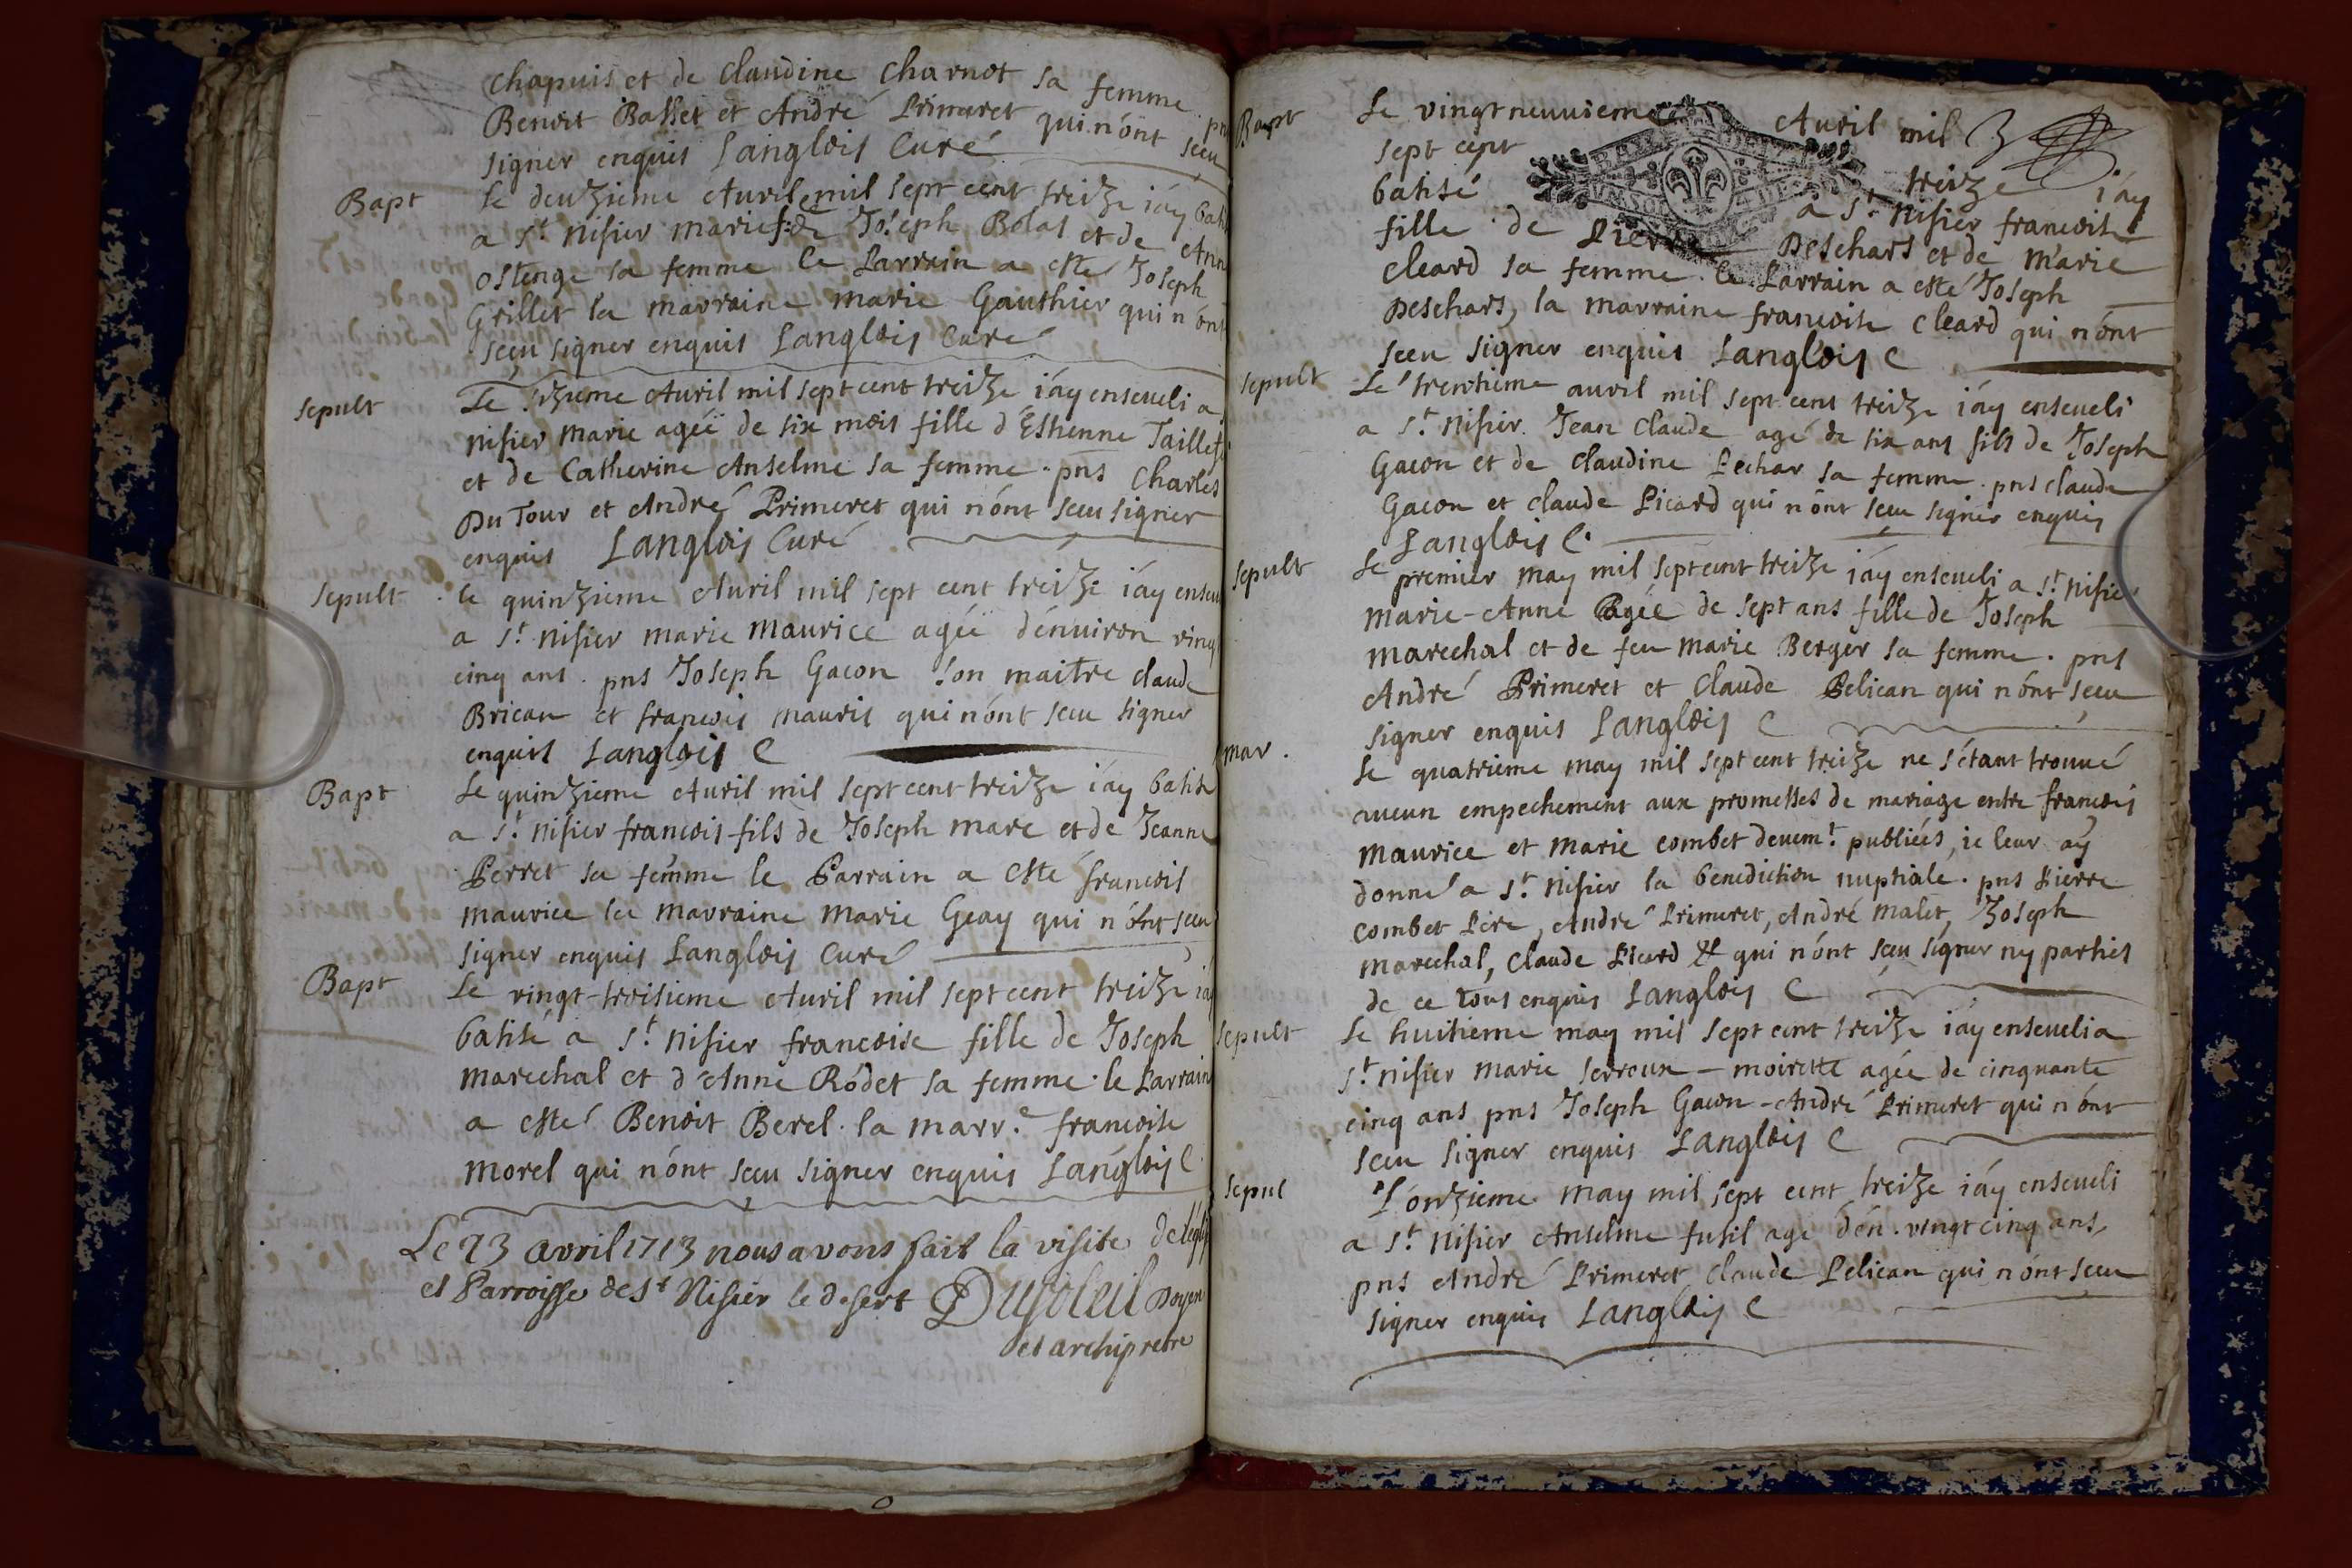 Chapuis et de Claudine Charnot sa femme pns
Benoit Basset et André Primeret qui n'ónt sceu
signer enquis Langlois Curé
Bapt Le deuzieme Avril mil sept cent treize i'ay bati
a St. Nisier Marie fille de Joseph Bolas et de Ann
Ostenge sa femme le Parrain a esté Joseph
Grillet la marraine Marie Gauthier qui n'ónt
sceu signer enquis Langlois Curé
Sepult Le Avril mil sept cent treize i'ay enseveli a
Nisier Marie agée de six mois fille d'Esthenne Taillet
et de Catherine Anselme sa femme. pns Charles
Du Tour et André Primeret qui n'ónt sceu signer
enquis Langlois Curé
Sepult Le quinzieme Avril mil sept cent treize i'ay enseu
a St. Nisier Marie Maurice agée d'énuiron vingt
cinq ans. pns Joseph Gacon son maitre Claude
Brican et francois Mauris qui n'ónt sceu signer
enquis Langlois C
Bapt Le quinzieme Avril mil sept cent treize i'ay batisé
a St. Nisier francois fils de Joseph Marc et de Jeanne
Perret sa femme le Parrain a esté francois
Maurice la marraine Marie Geay qui n'ónt sceu
signer enquis Langlois Curé
Bapt Le vingt-troisieme Avril mil sept cent treize i'ay
batisé a St. Nisier francoise fille de Joseph
Marechal et d'Anne Ródet sa femme. le Parrain
a esté Benoit Berel. la marr.e francoise
Morel qui n'ónt sceu signer enquis Langlois C.
Le 23 avril 1713 nous avons fait la visite de l'égli
et Parroisse de St Nisier le desert Dusoleil Doyen
et archipretre
Bapt Le vingt neuuieme Avril mil
sept cent treize i'ay
batisé a St. Nisier francoise
fille de Pierre Deschars et de Marie
Cleard sa femme. le Parrain a esté Joseph
Deschars, la marraine francoise Cleard qui n'ónt
sceu signer enquis Langlois C
Sepult Le trentieme auril mil sept cent treize i'ay enseveli
a St. Nisier. Jean Claude agé de six ans fils de Joseph
Gacon et de Claudine Pechar sa femme. pns Claude
Gacon et Claude Picard qui n'ónt sceu signer enquis
Langlois C.
Sepult Le premier may mil sept cent treize i'ay enseveli a St. Nisier
Marie-Anne agée de sept ans fille de Joseph
Marechal et de feu Marie Berger sa femme. pns
André Primeret et Claude Pelican qui n'ónt sceu
signer enquis Langlois C
Mar. Le quatrieme may mil sept cent treize ne s'étant trouué
aucun empechement aux promesses de mariage entre francois
Maurice et Marie Combet deuemt. publiées, ie leur ay
donné a St. Nisier la benediction nuptiale. pns Pierre
Combet Pere, André Primeret, André Malet, Joseph
Marechal, Claude Picard & qui n'ónt sceu signer ny parties
de ce tous enquis Langlois C
Sepult Le huitieme may mil sept cent treize i'ay enseueli a
St. Nisier Marie Serreux-moirette agée de cinquante
cinq ans pns Joseph Gacon-André Primeret qui n'ónt
sceu signer enquis Langlois C
Sepul L'ónzieme may mil sept cent treize i'ay enseueli
a St. Nisier Anselme fusil agé d'én. vingt cinq ans,
pns André Primeret, Claude Pelican qui n'ónt sceu
signer enquis Langlois C